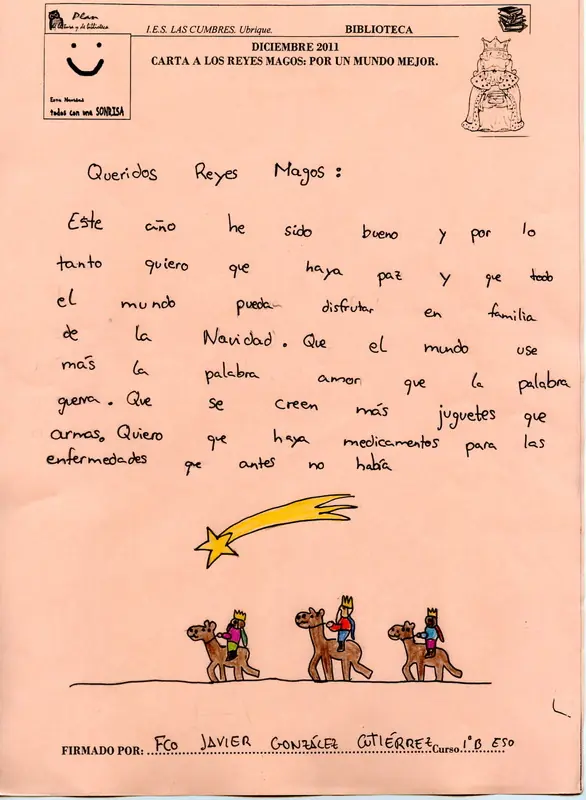 Plan
de lectura y de bibliotecas
I.E.S. LAS CUMBRES. Ubrique.
BIBLIOTECA
Esta Navidad
todos con una SONRISA
DICIEMBRE 2011
CARTA A LOS REYES MAGOS: POR UN MUNDO MEJOR.
Queridos Reyes Magos:
Este año he sido bueno y por lo
tanto quiero que haya paz y que todo
el mundo pueda disfrutar en familia
de la Navidad. Que el mundo use
más la palabra amor que la palabra
guerra. Que se creen más juguetes que
armas. Quiero que haya medicamentos para las
enfermedades que antes no había
FIRMADO POR: FCO JAVIER GONZÁLEZ GUTIÉRREZ Curso 1º B ESO